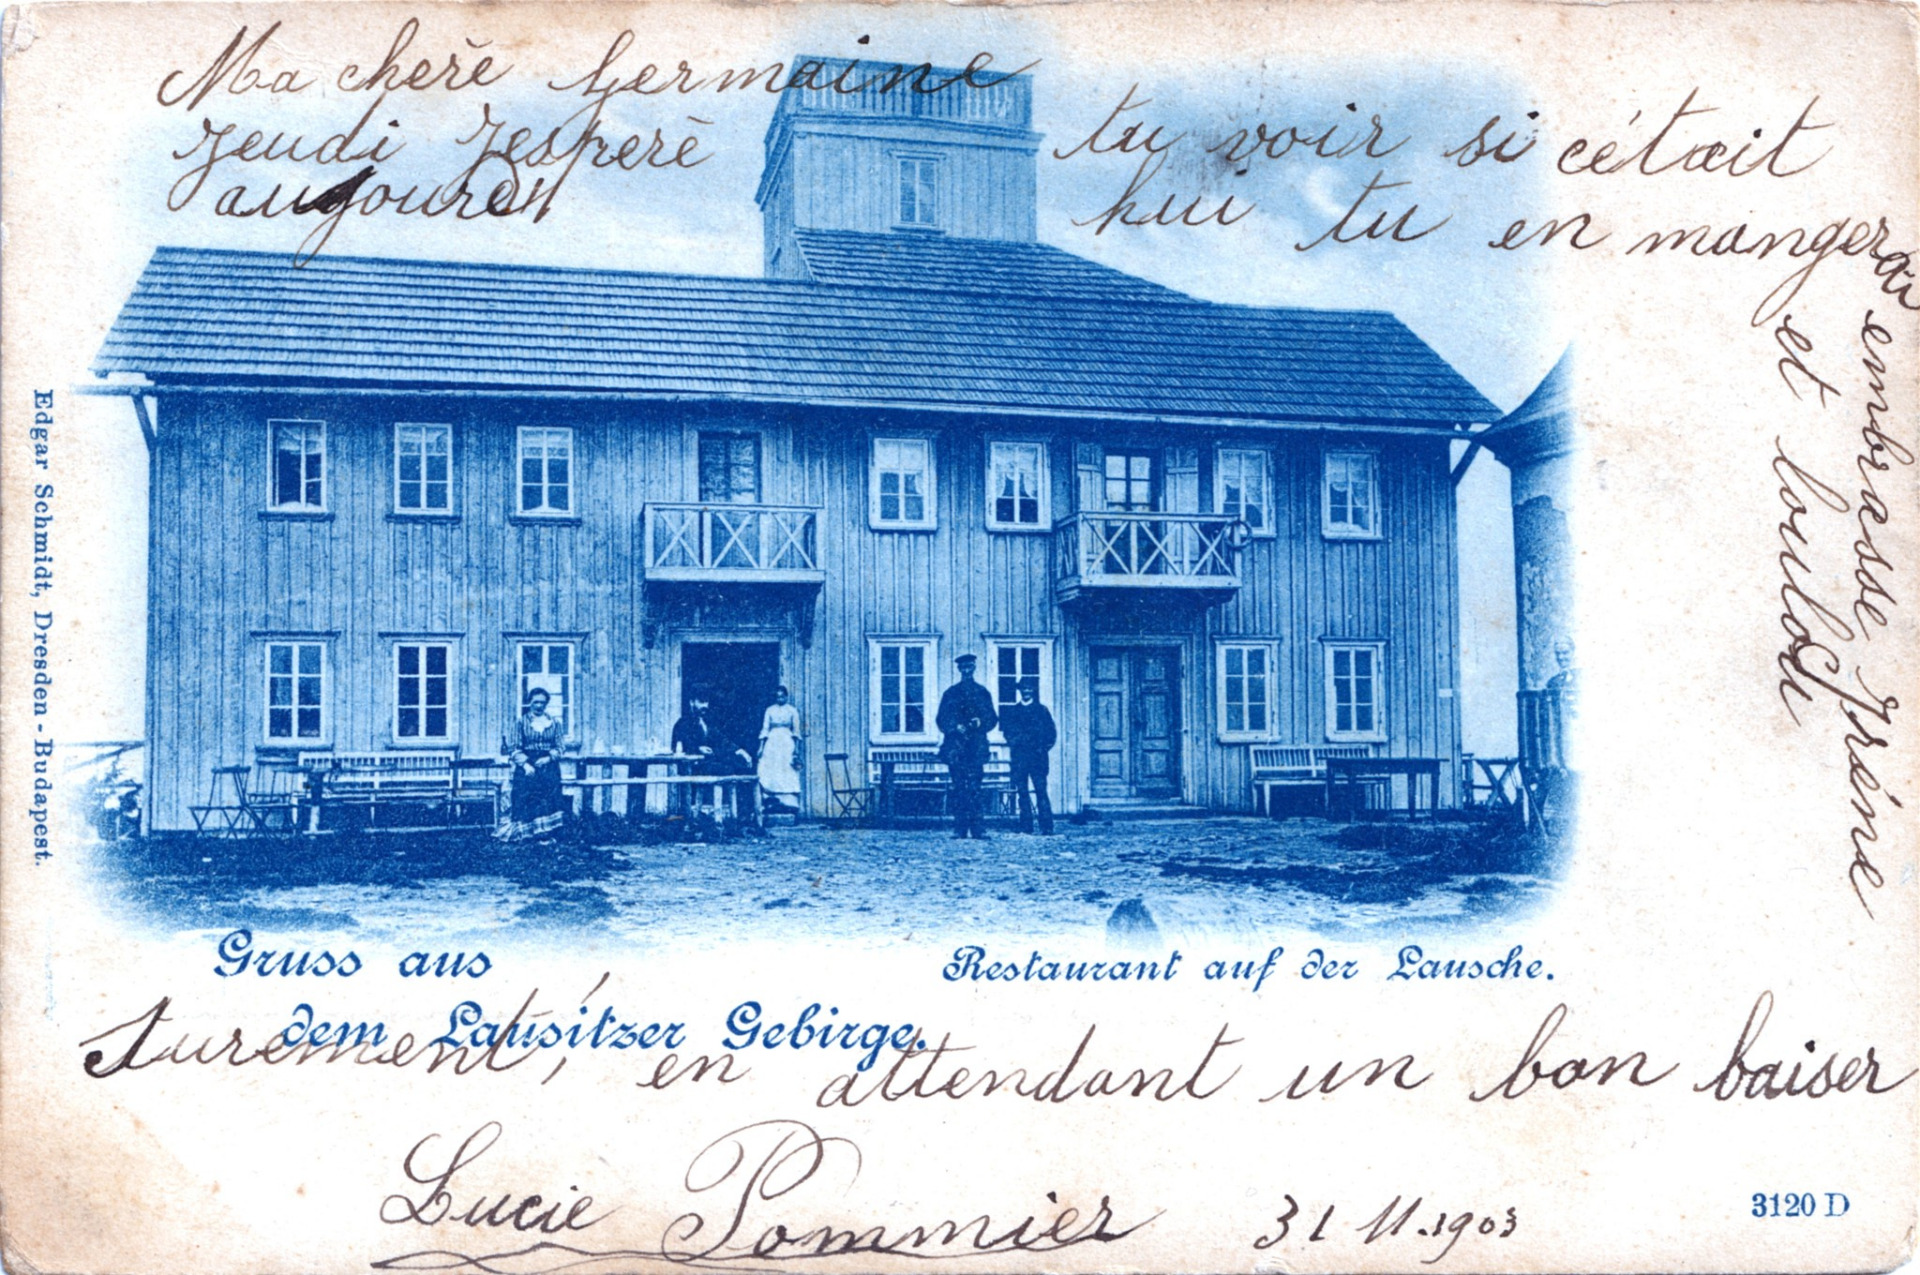 Ma cherè Germaine
jeudi j'esperè tu voir si c'était
aujourd' hui tu en mangerai
surement, en attendant un bon baiser
Lucie Pommier 31 11.1903
embrasse Iréne
et loulou
Gruss aus
dem Lausitzer Gebirge.
Restaurant auf der Lausche.
Edgar Schmidt, Dresden - Budapest.
3120 D